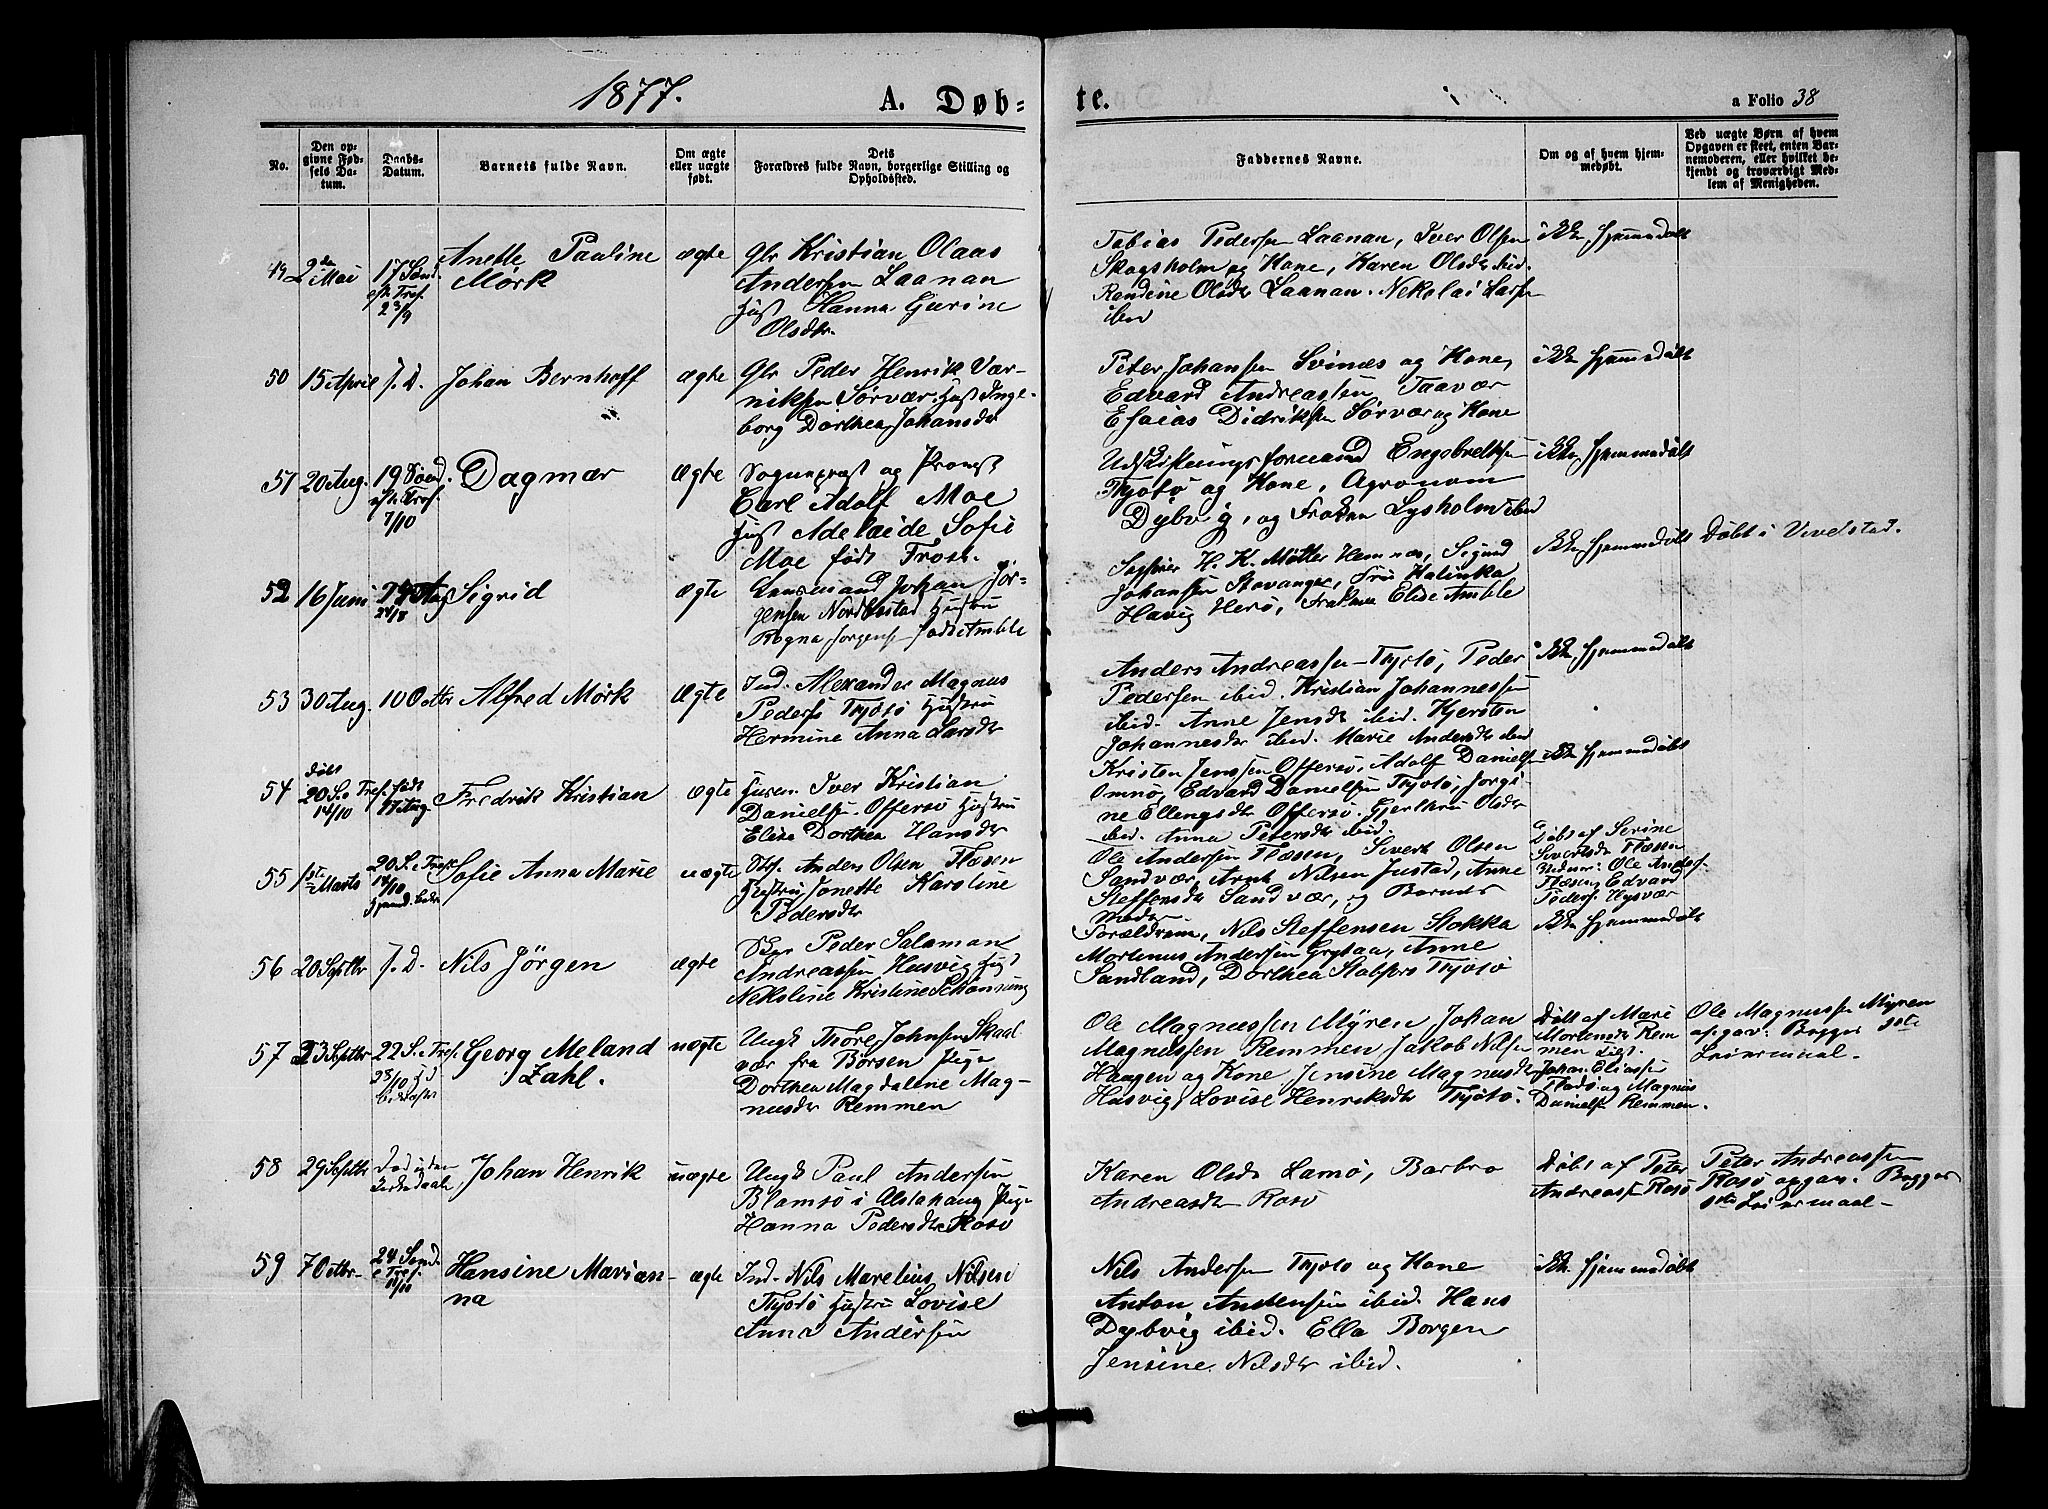 1877.
A. Døb-
te.
a Folio 38
No.
Den op-
givne Fød-
sels Da-
tum.
Daabs-
Datum.
Barnets fulde Navn.
Om ægte
eller uægte
født.
Dets
Forældres fulde Navn, borgerlige Stilling og
Opholdssted.
Faddernes Navne.
Om og af hvem hjem-
medøbt.
Ved uægte Børn af hvem
Opgaven er skeet, enten Bar-
nemoderen, eller hvilket be-
kjendt og troværdigt Med-
lem af Menigheden.
49
2den
Mai
17 Sønd.
eft. Tref.
23/9
Anette Pauline
Mørk
ægte
Gbr Kristian Olaas
Andersen Laanan
Hust Hanna Gurine
Olsdtr.
Tobias Pedersen Laanan, Iver Olsen
Skogsholm og Kone, Karen Olsdtr ibid.
Randine Olsdtr Laanan. Nekolai Larsen
ibid
ikke hjemmedøbt
50
15 April
f. D.
Johan Bernhoff
ægte
Gbr Peder Henrik Vær-
niksen Sørvær. Hust Inge-
borg Dorthea Johansdtr
Peter Johansen Svinæs og Kone,
Edvard Andreassen Taavær
Esaias Didriksen Sørvær og Kone
ikke hjemmedøbt
51
20 Aug.
19 Sønd.
eft. Tref.
7/10
Dagmar
Ægte
Sogneprest og Provst
Carl Adolf Moe
Hust Adelaide Sofie
Moe født Frost.
Udskiftningsformand Engebretsen
Thjøtø og Kone, Agronom
Dybvig, og Frøken Lysholm ibid
ikke hjemmedøbt
52
16 Juni
24/8
Sigrid
ægte
Lensmand Johan Jør-
gensen Nordbostad Hustru
Ragna Jørgensen født Amble
H. K. Møller Hemnæs, Sigurd
Johansen Stavanger, Fru Halinka
Havig Herø, Frøken Elise Amble
ikke hjemmedøbt
Døbt i Vivelstad.
53
30 Aug.
1 Octbr
Alfred Mørk
Ægte
Ind. Alexander Magnus
Peders. Thjøtø Hustru
Hermine Anna Larsdtr
Anders Andreassen Thjøtø, Peder
Pedersen ibid. Kristian Johannessen
ibid. Anne Jensdtr ibid. Kjersten
Johannesdtr ibid. Marie Andersdtr ibid
ikke hjemmedøbt
54
døbt
20 S. e Tref.
14/10
født
17 Aug.
Fredrik Kristian
ægte
Husm. Iver Kristian
Danielsen Offersø Hustru
Elisa Dorthea Hansdtr
Kristen Jenssen Offersø, Adolf Danielsen
Omnø, Edvard Danielsen Thjøtø, Jørgi-
ne Ellengsdtr Offersø. Gjertru Olsdtr
ibid. Anna Petersdtr ibid.
ikke hjemmedøbt
55
1ste
Marts
20 S. e Tref.
14/10
Sofie Anna Marie
uægte
Anders Olsen Flæsen
Hustru Jonette Karoline
Pedersdtr
Ole Andersen Flæsen, Sivert Olsen
Sandvær, Arnt Nilsen Justad, Anne
Steffensdtr Sandvær, og Barnets
Moder
Døbt af Serine
Sivertsdtr Flæsen
Vidner: Ole Anders.
Flæsen, Edvard
Peders. Hysvær
56
20 Septbr
f. D.
Nils Jørgen
ægte
Peder Salamon
Andreassen Husvig Hust
Nekoline Kristine Schønning
Forældrene, Nils Steffensen Stokka
Mortenus Andersen Grytaa, Anne
Sandland, Dorthea Stabfors Thjøtø
ikke hjemmedøbt
57
23 Septbr
22 S. e Tref.
28/10
Georg Meland
Zahl.
uægte
Ungk Thore Johnsen Skaal-
vær fra Børsen Pige
Dorthea Magdalene Mag-
nusdtr Remmen
Ole Magnussen Myren Johan
Magnussen Remmen Jakob Nilsen
Haugen og Kone Jensine Magnusdtr
Husvig, Lovise Henriksdtr Thjøtø.
Døbt af Mari
Mortensdtr Rem
men
Johan Eliassen
Fladø og Magnus
Daniels. Remmen.
Ole Magnussen Myren
opgav: Begges 1ste
Leiermaal.
58
29 Septbr
Død uden
Kirkedaab
Johan Henrik
uægte
Ungk Paul Andersen
Blamsø i Alstahaug Pige
Hanna Pedersdtr Rosø
Karen Olsdtr Lamø, Barbro
Andreasdtr Rosø
Døbt af Peter
Andreassen Rosø
Peter Andreassen
Rosø opgav. Begges
1ste Leiermaal-
59
7 Octbr
24 Sønd.
e Tref.
11/11
Hansine Marian-
na
ægte
Ind. Nils Marelius Nilsen
Thjøtø Hustru Lovise
Anna Andersen
Nils Andersen Thjøtø og Kone
Anton Andersen ibid. Hans
Dybvig ibid. Ella Borgen
Jensine Nilsdtr ibid.
ikke hjemmedøbt